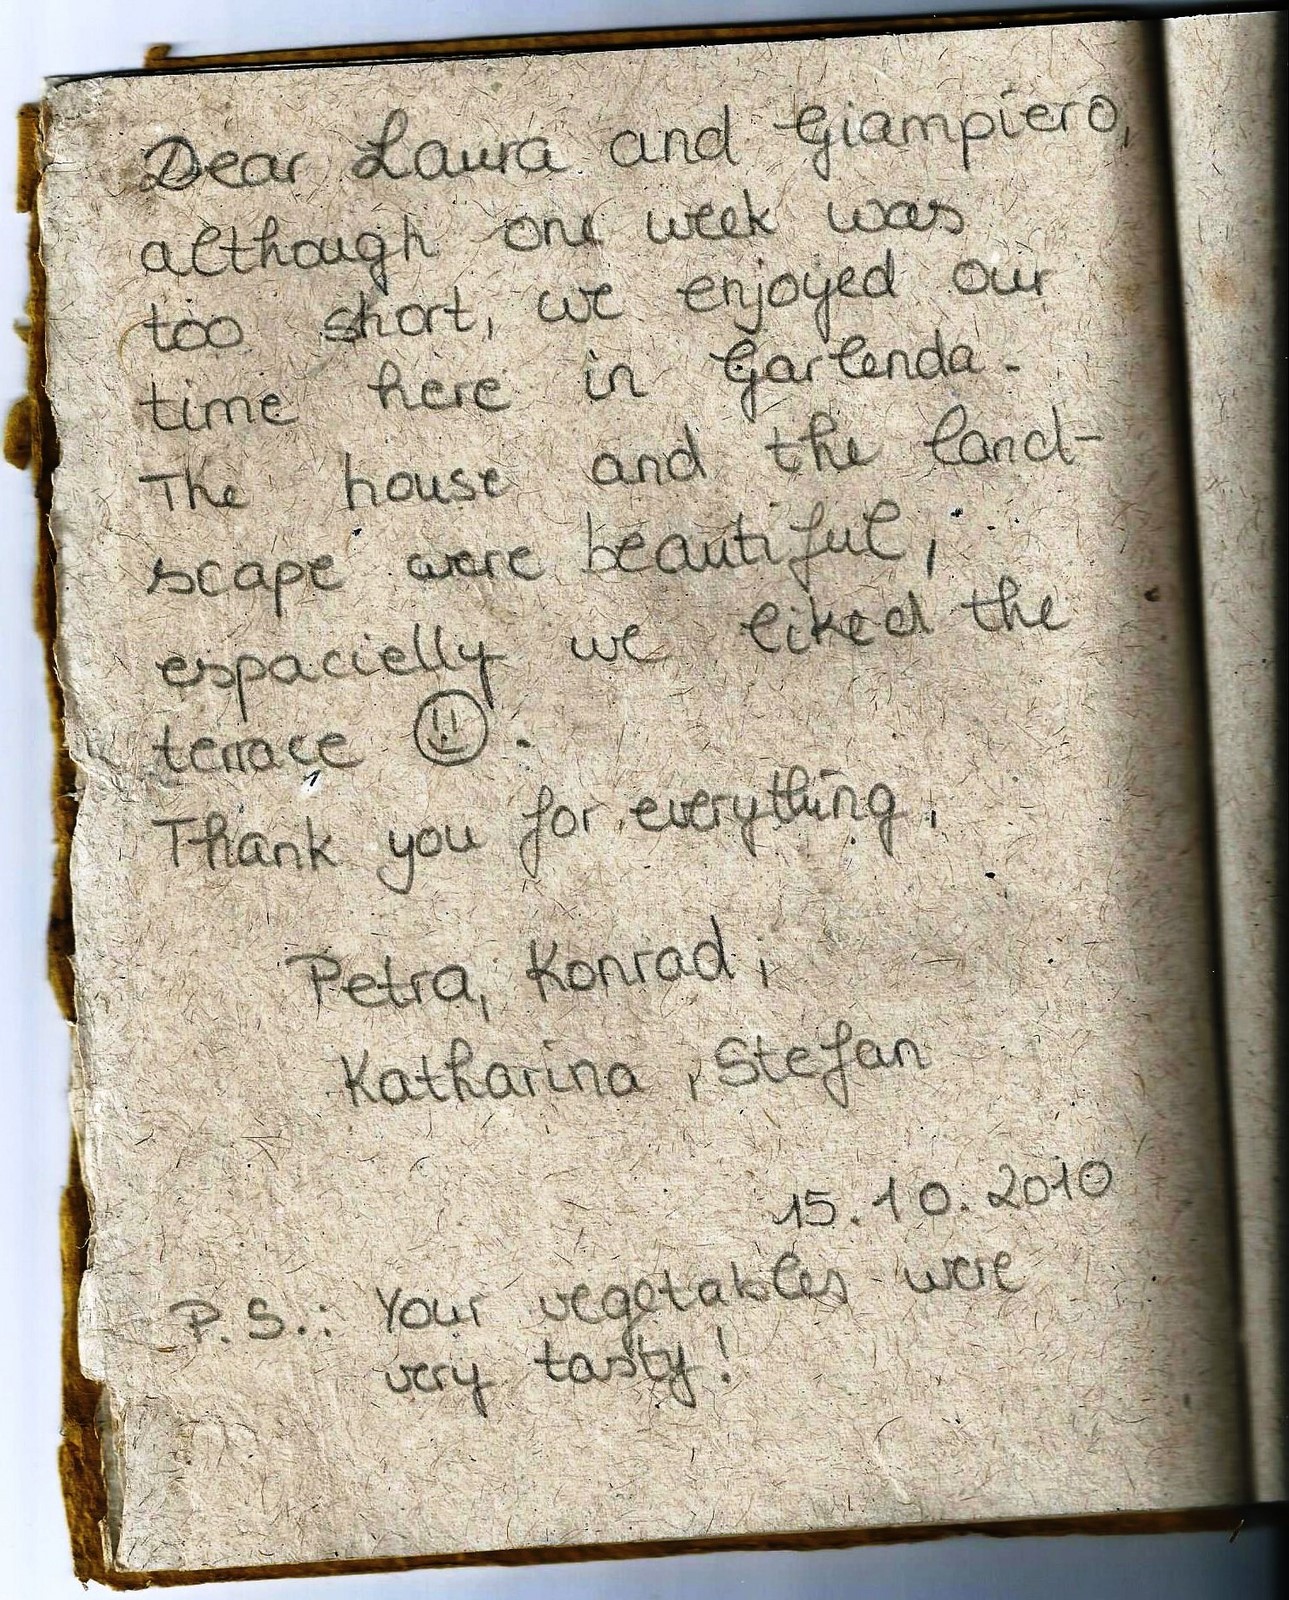 Dear Laura and Giampiero,
although one week was
too short, we enjoyed our
time here in Garlenda.
The house and the land-
scape were beautiful,
espacielly we liked the
terrace ☺.
Thank you for everything,
Petra, Konrad,
Katharina, Stefan
15.10.2010
P.S.: Your vegetables were
very tasty!